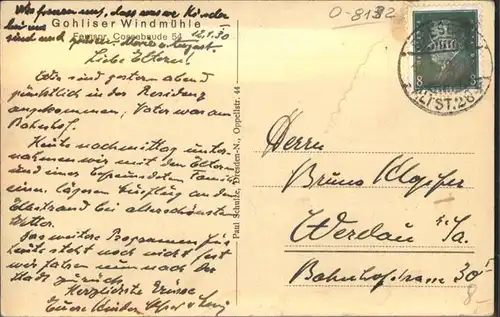 Wir freuen uns, dass unsere Kinder
bei uns
sind und
O-8132
Gohliser Windmühle
Fernspr. Cossebaude 54
12.8.30
Liebe Eltern!
Wir sind gestern abend
pünktlich in der Residenz
angekommen, Vater war am
Bahnhof.
Heute nachmittag unter-
nahmen wir mit den Eltern
und einer befreundeten Familie
einen Ausflug an den
Elbestrand bei allerschönstem
Wetter.
Das weitere Programm für
heute steht noch nicht fest
wir fahren nun nach der
Stadt zurück.
Herzlichste Grüsse
Eure Kinder
Paul Schulze, Dresden-N., Oppellstr. 44
8 8
ALTST. 28
Herrn
Bruno Klopfer
Werdau i/Sa.
Bahnhofstrasse 30
8-